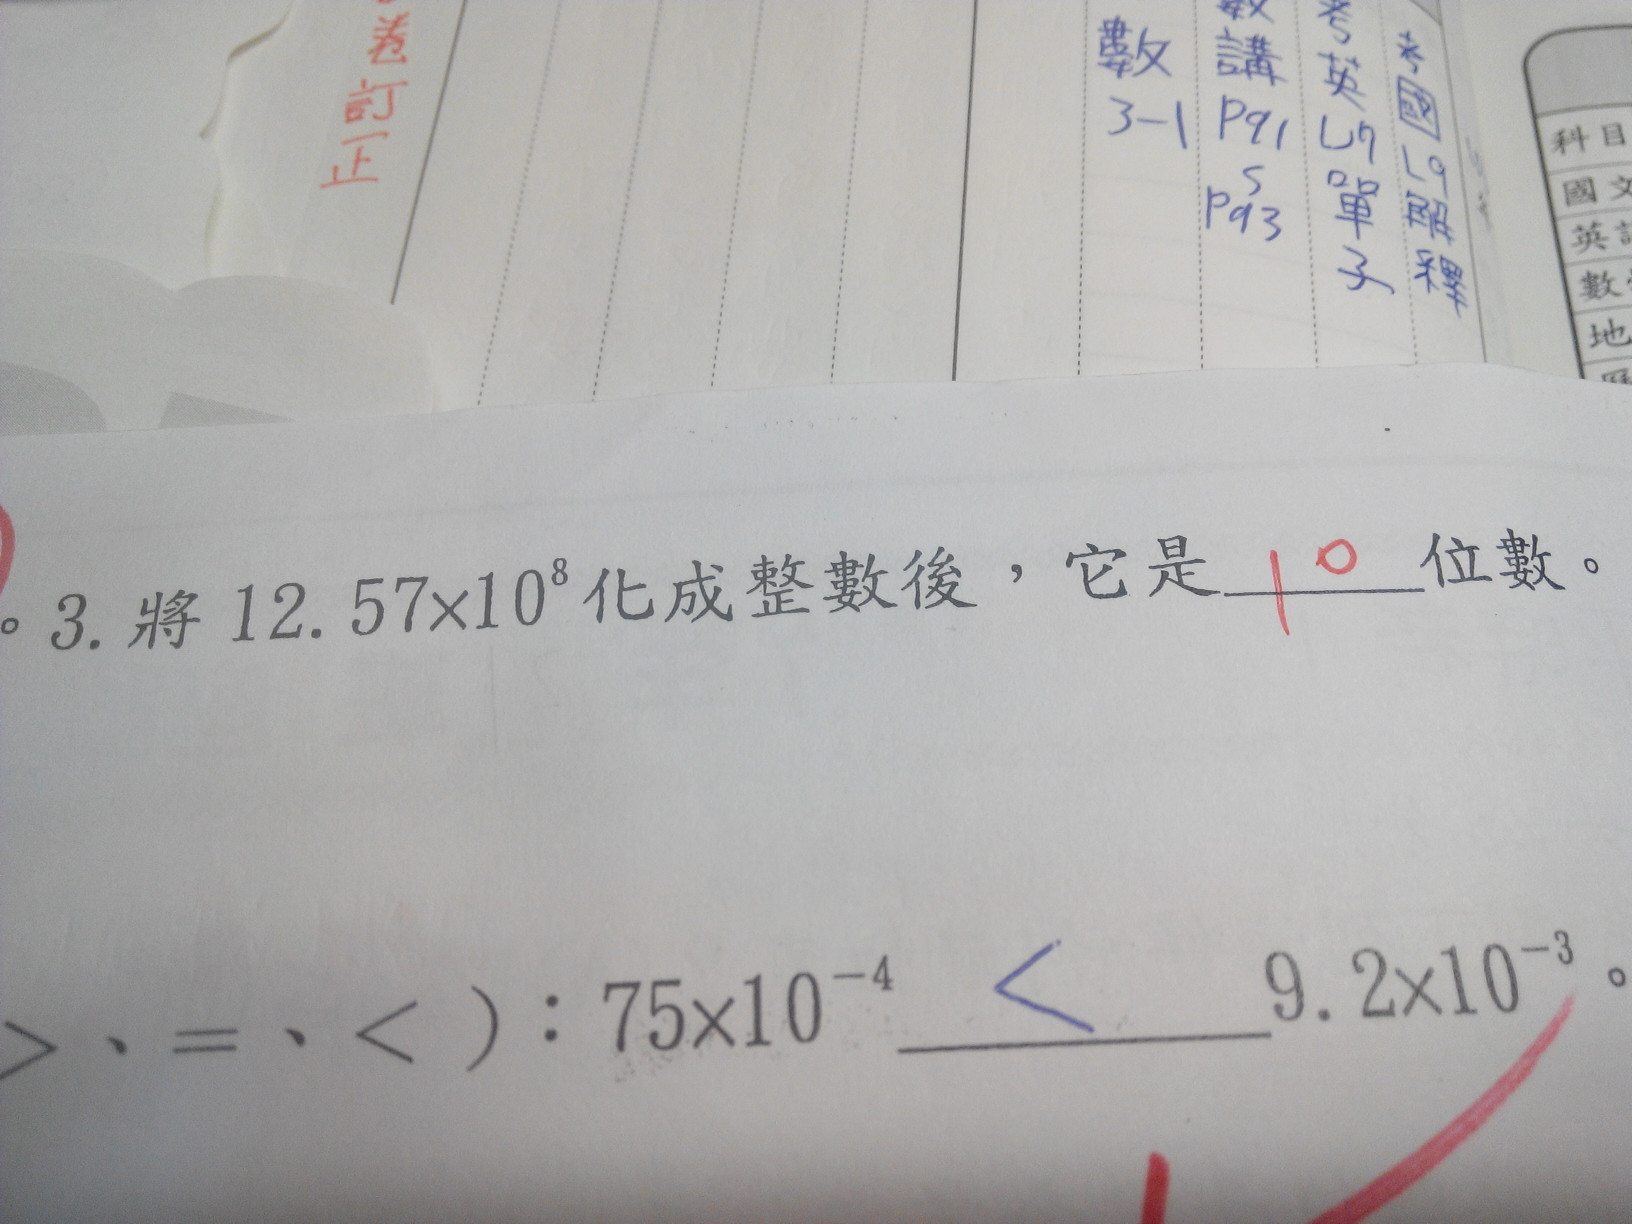 卷訂正
數 3-1
數講 P91 S P93
考英L9單子
考國L9解釋
科目
國文
英語
數學
地
。3. 將 12.57×10⁸ 化成整數後，它是 10 位數。
> 、 = 、 < )：75×10⁻⁴ < 9.2×10⁻³。